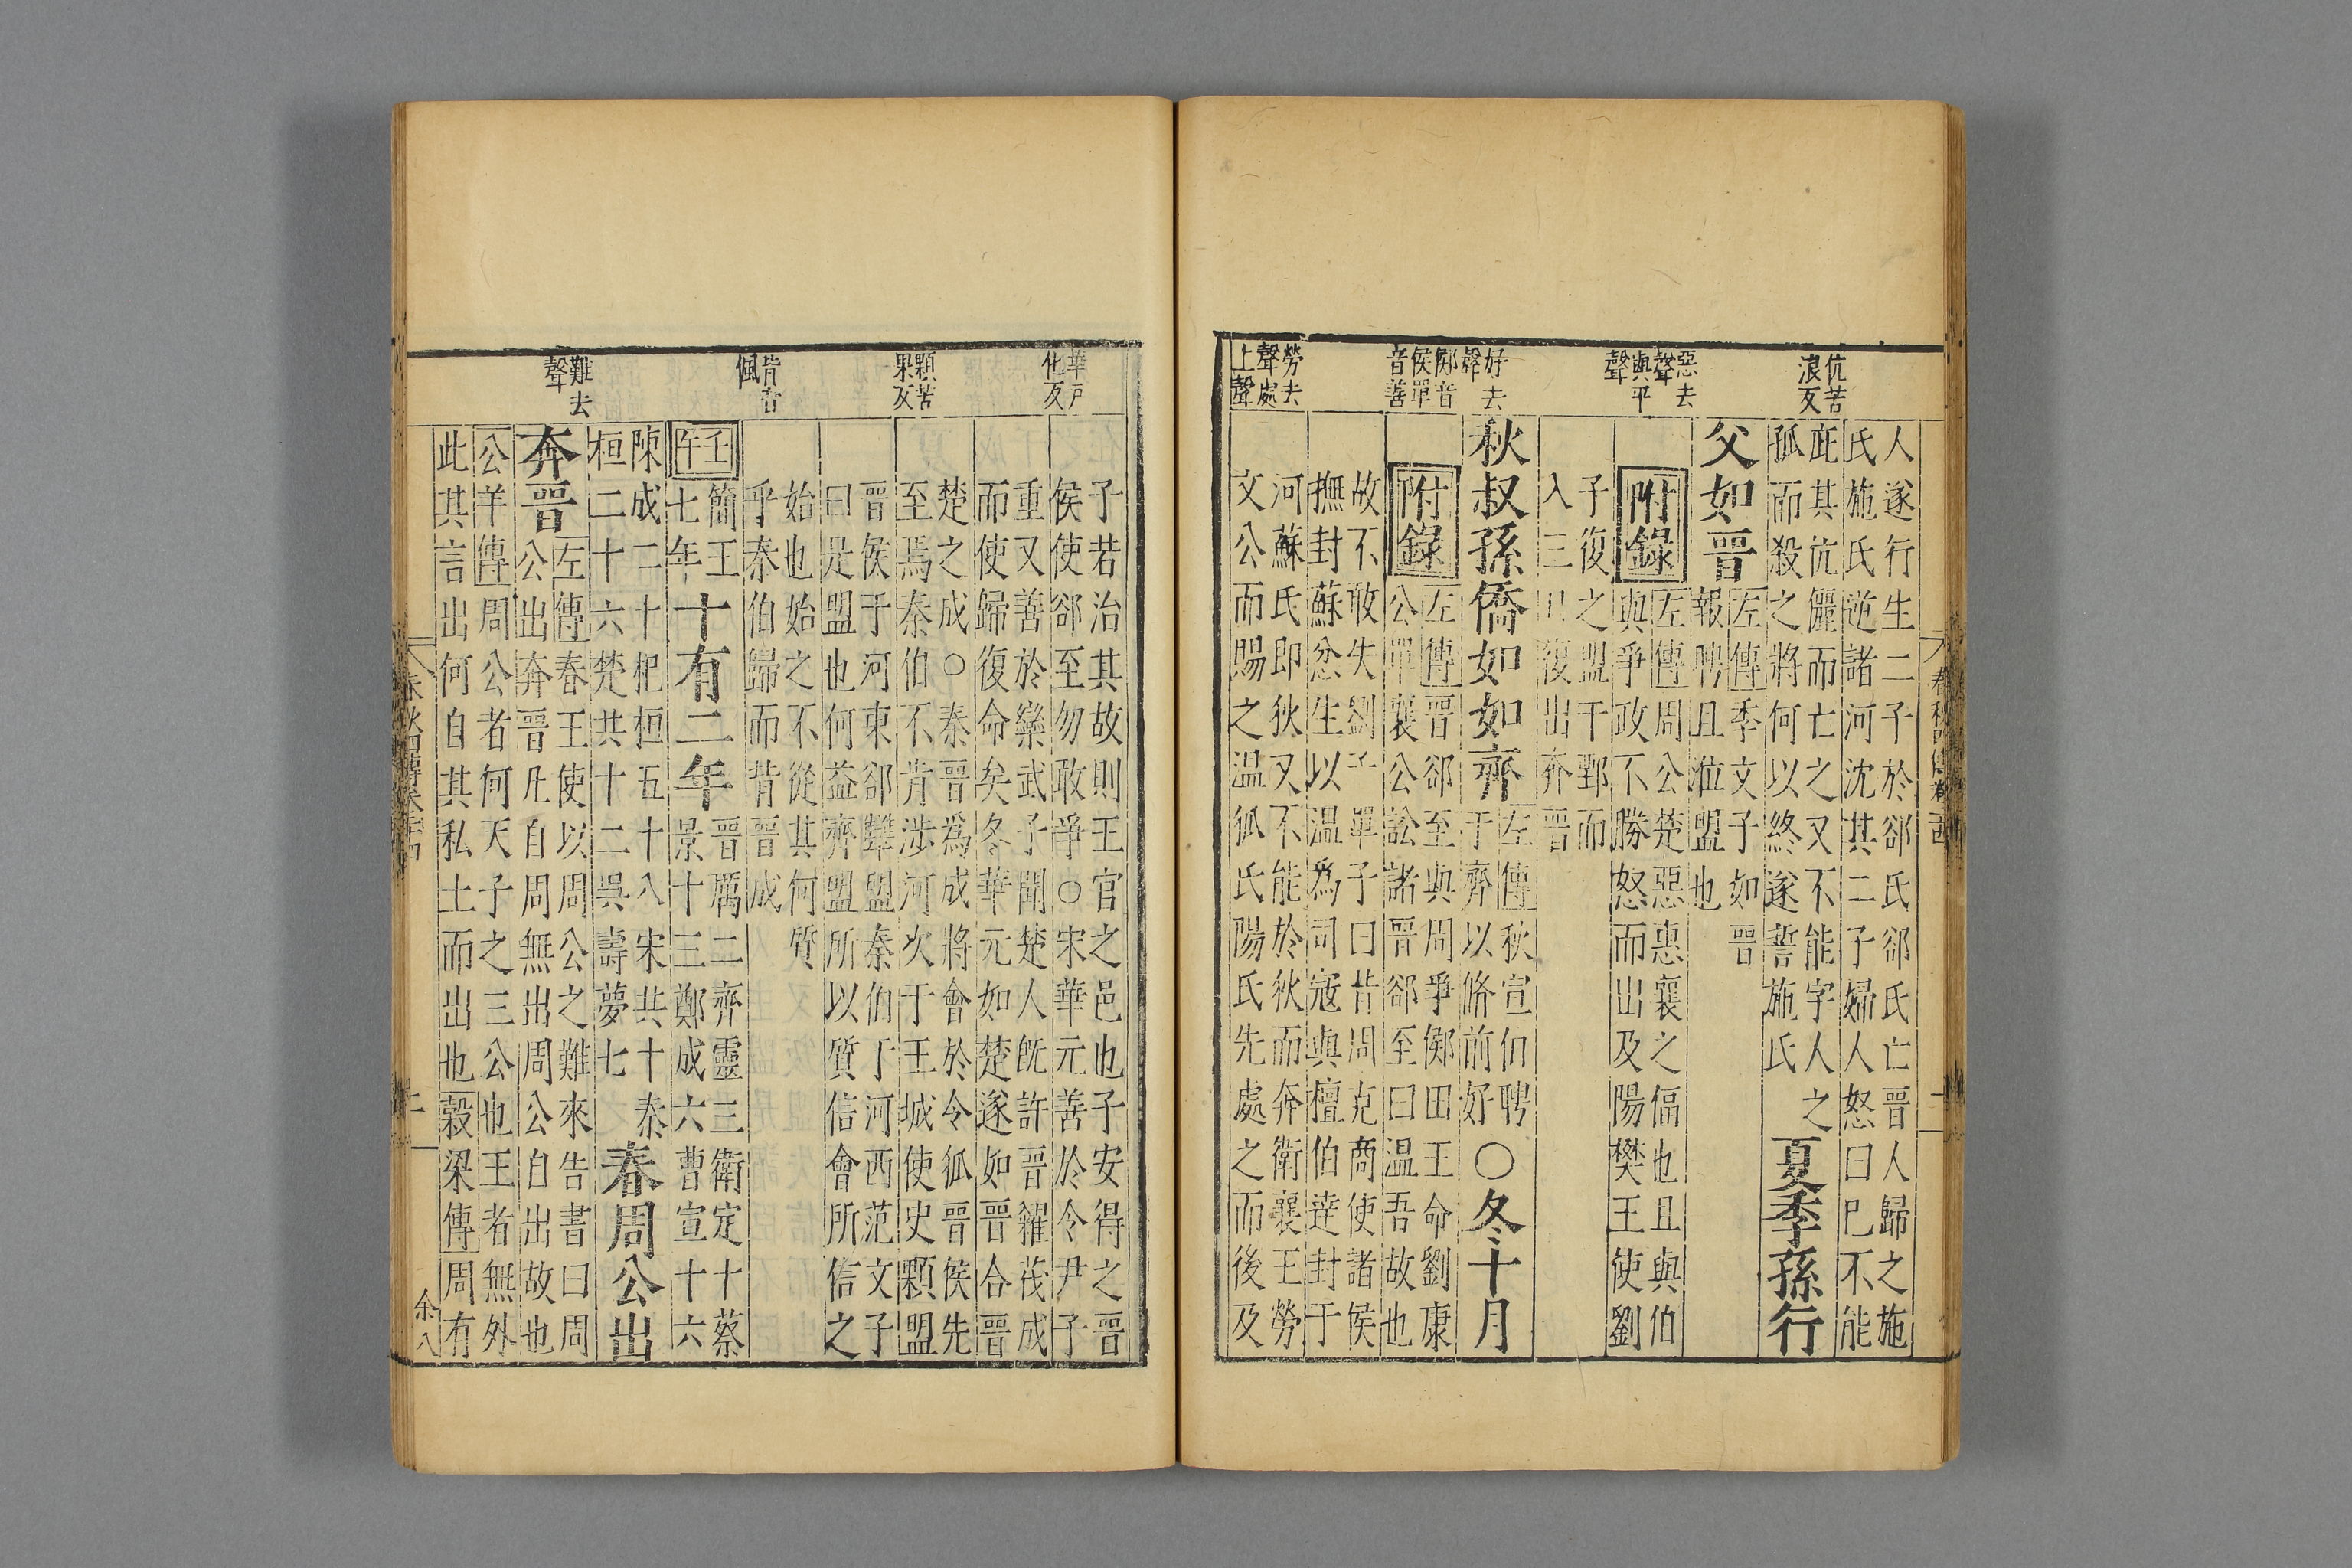 伉苦
浪反
惡去
聲
與平
聲
好去
聲
鄇音
侯單
音善
勞去
聲處
上聲
人遂行生二子於郤氏郤氏亡晉人歸之施
氏施氏逆諸河沈其二子婦人怒曰巳不能
庇其伉儷而亡之又不能字人之
孤而殺之將何以終遂誓施氏
夏季孫行
父如晉
左傳季文子如晉
報聘且涖盟也
附錄
左傳周公楚惡惠襄之偪也且與伯
與爭政不勝怒而出及陽樊王使劉
子復之盟于鄄而
入三日復出奔晉
秋叔孫僑如如齊
左傳秋宣伯聘
于齊以脩前好
○冬十月
附錄
左傳晉郤至與周爭鄇田王命劉康
公單襄公訟諸晉郤至曰溫吾故也
故不敢失劉子單子曰昔周克商使諸侯
撫封蘇忿生以溫爲司寇與檀伯達封于
河蘇氏即狄又不能於狄而奔衛襄王勞
文公而賜之溫狐氏陽氏先處之而後及
春秋四傳卷
二
華戶
化反
顆苦
果反
背音
佩
難去
聲
子若治其故則王官之邑也子安得之晉
侯使郤至勿敢爭○宋華元善於令尹子
重又善於欒武子聞楚人旣許晉糴茷成
而使歸復命矣冬華元如楚遂如晉合晉
楚之成○秦晉爲成將會於令狐晉侯先
至焉秦伯不肯涉河次于王城使史顆盟
晉侯于河東郤犨盟秦伯于河西范文子
曰是盟也何益齊盟所以質信會所信之
始也始之不從其何質
乎秦伯歸而背晉成
壬
午
簡王
七年
十有二年
晉厲二齊靈三衛定十蔡
景十三鄭成六曹宣十六
陳成二十杞桓五十八宋共十秦
桓二十六楚共十二吳壽夢七
春周公出
奔晉
左傳春王使以周公之難來告書曰周
公出奔晉凡自周無出周公自出故也
公羊傳周公者何天子之三公也王者無外
此其言出何自其私土而出也穀梁傳周有
余八